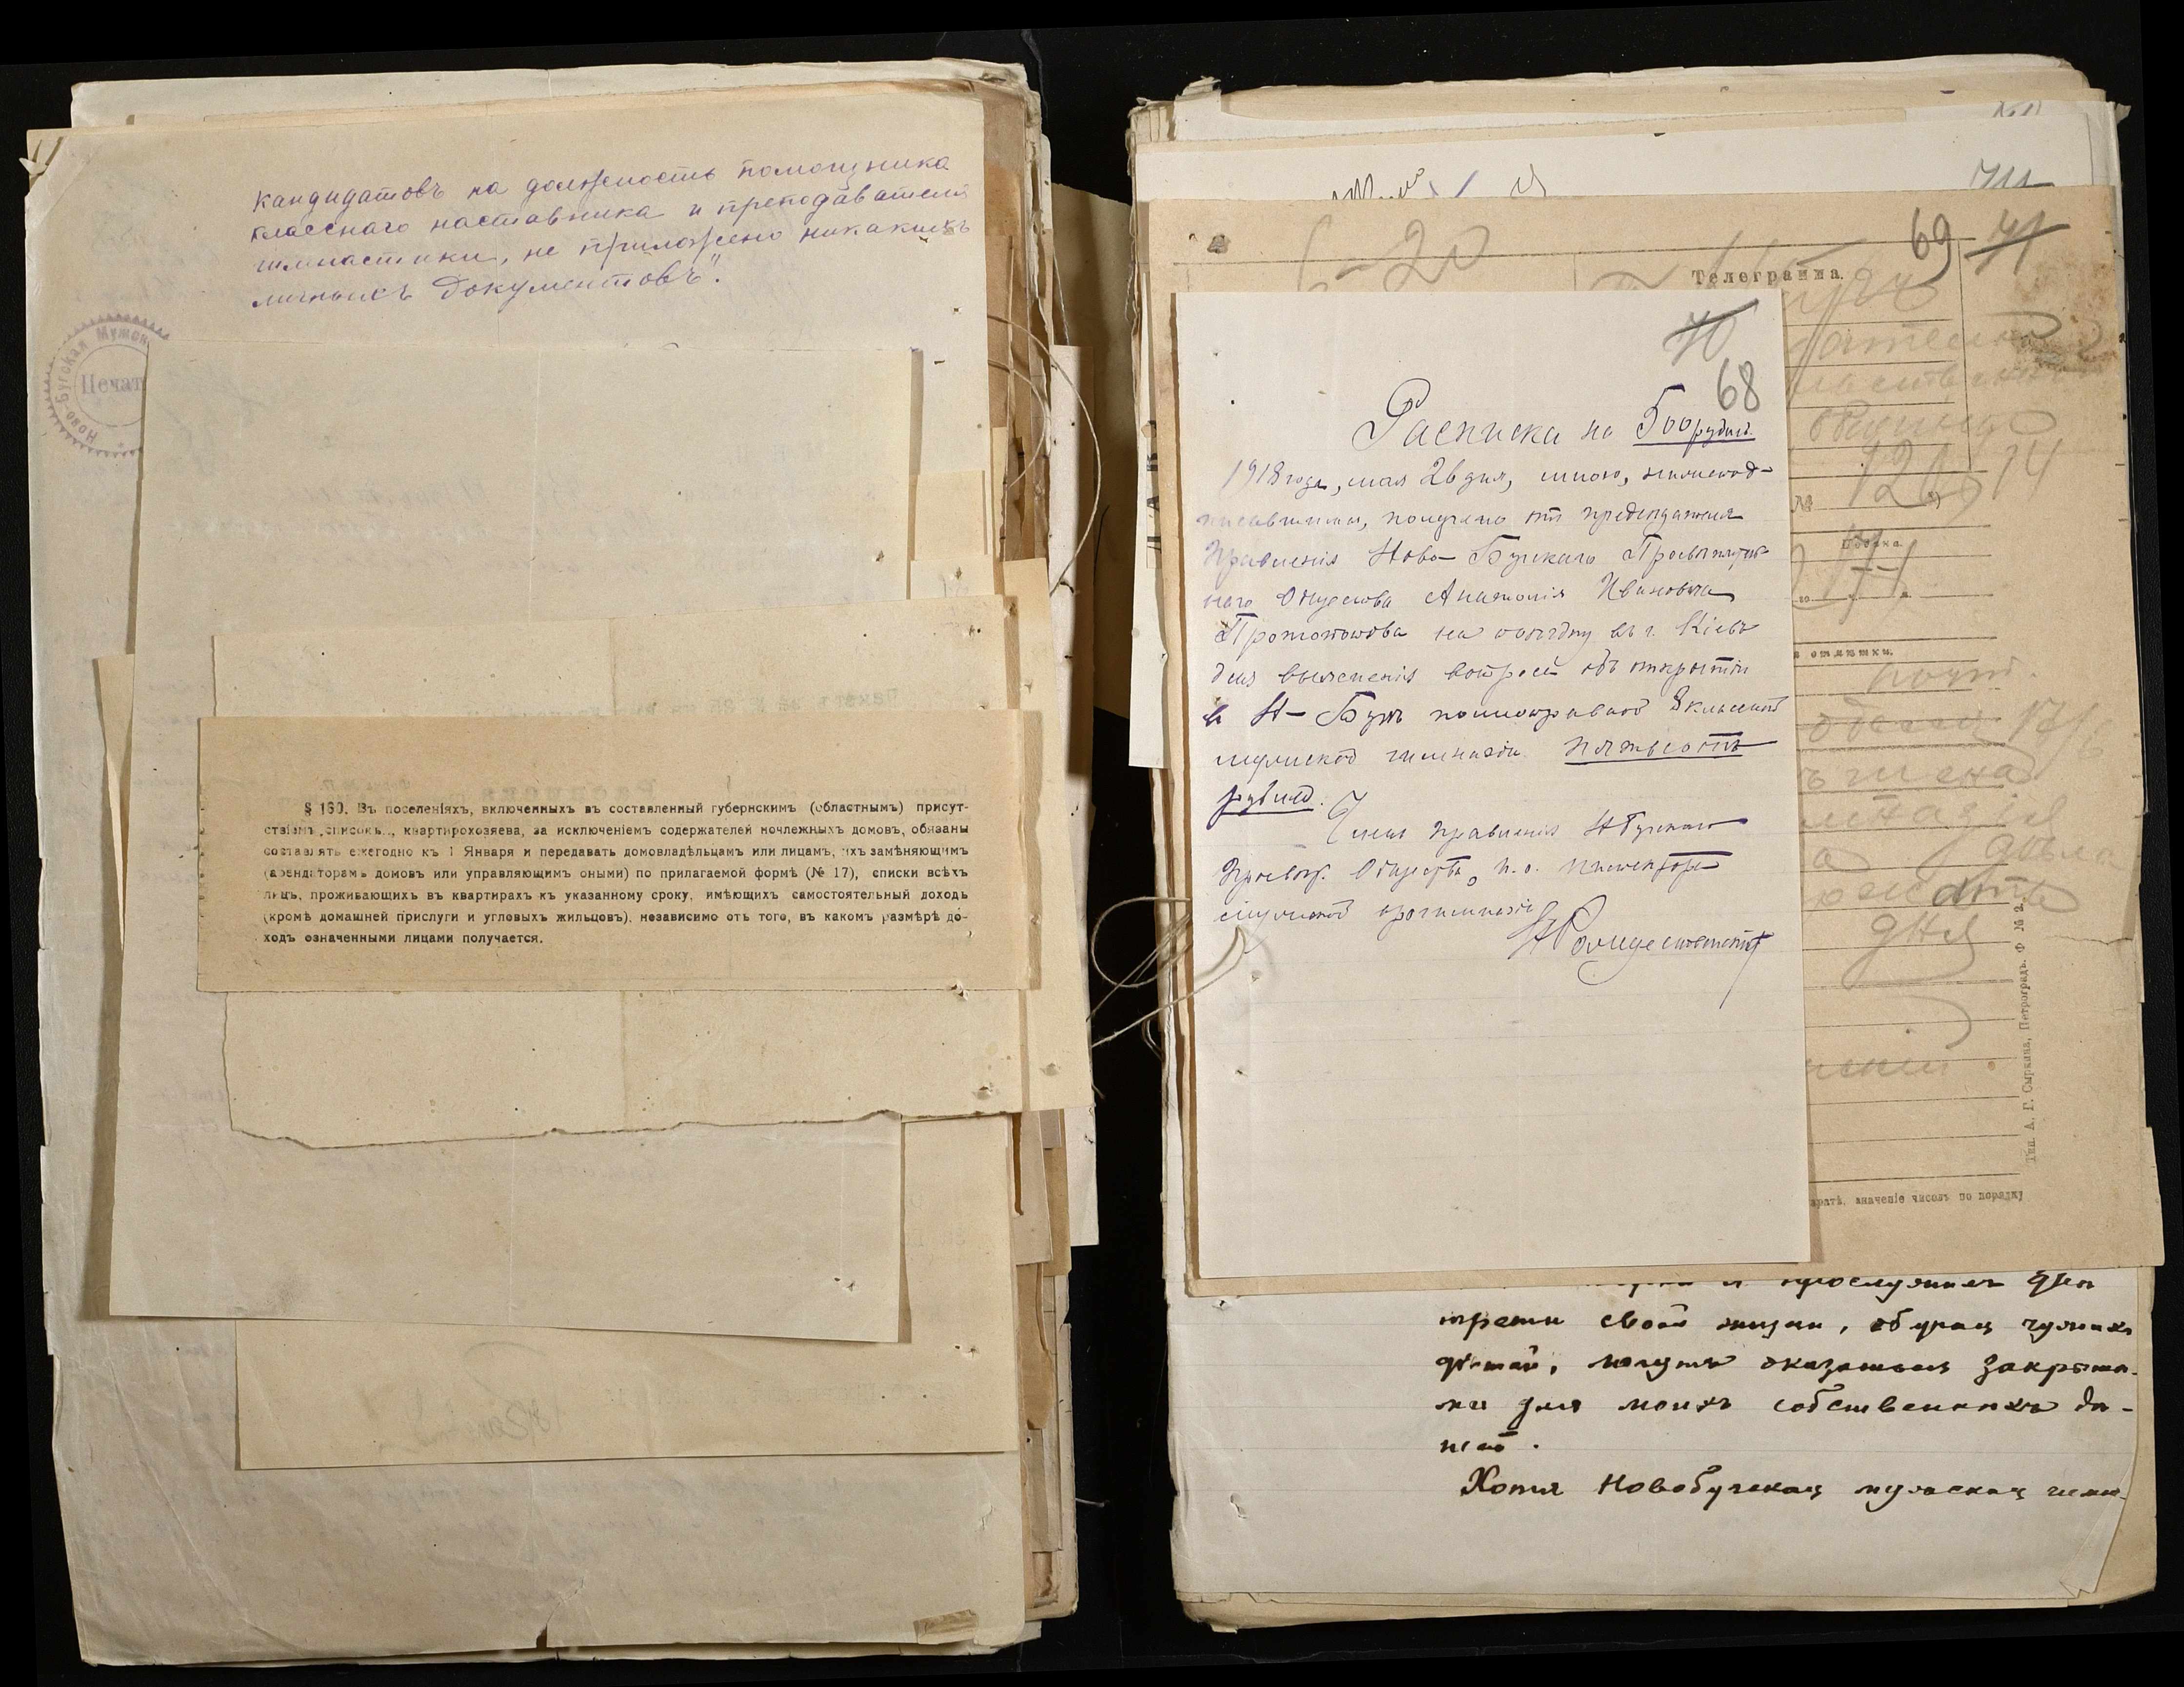 кандидатовъ на должность помощника
класснаго наставника и преподавателя
гимнастики, не приложено никакихъ
личныхъ документовъ".
Ново-Бугская Мужск
Печат
§ 160. Въ поселеніяхъ, включенныхъ въ составленный губернскимъ (областнымъ) присут-
ствіемъ списокъ, квартирохозяева, за исключеніемъ содержателей ночлежныхъ домовъ, обязаны
составлять ежегодно къ 1 Января и передавать домовладѣльцамъ или лицамъ, ихъ замѣняющимъ
(арендаторамъ домовъ или управляющимъ оными) по прилагаемой формѣ (№ 17), списки всѣхъ
лицъ, проживающихъ въ квартирахъ къ указанному сроку, имѣющихъ самостоятельный доходъ
(кромѣ домашней прислуги и угловыхъ жильцовъ), независимо отъ того, въ какомъ размѣрѣ до-
ходъ означенными лицами получается.
20
69 71
Телеграмма
70
68
Расписка на 500 рублей.
1918 года, мая 26 дня, мною, нижепод-
писавшимся, получено отъ предсѣдателя
Правленія Ново-Бугскаго Просвѣтитель-
наго Общества Анатолія Ивановича
Протопопова на поѣздку въ г. Кіевъ
для выясненія вопроса объ открытіи
въ Н-Бугѣ полноправной 8 классной
мужской гимназіи пятьсотъ
рублей.
Членъ Правленія Н-Бугскаго
Просвѣт. Общества, и. о. инспектора
мужской прогимназіи
Н Рождественскій
№
отмѣтки.
дня
Тип. А. Г. Сыркина, Петроградъ. Ф № 2.
значеніе чиселъ по порядку
и прослуживъ двѣ
трети своей жизни, обучая чужихъ
дѣтей, могутъ оказаться закрыты-
ми для моихъ собственныхъ дѣ-
тей.
Хотя Новобугская мужская гимн-